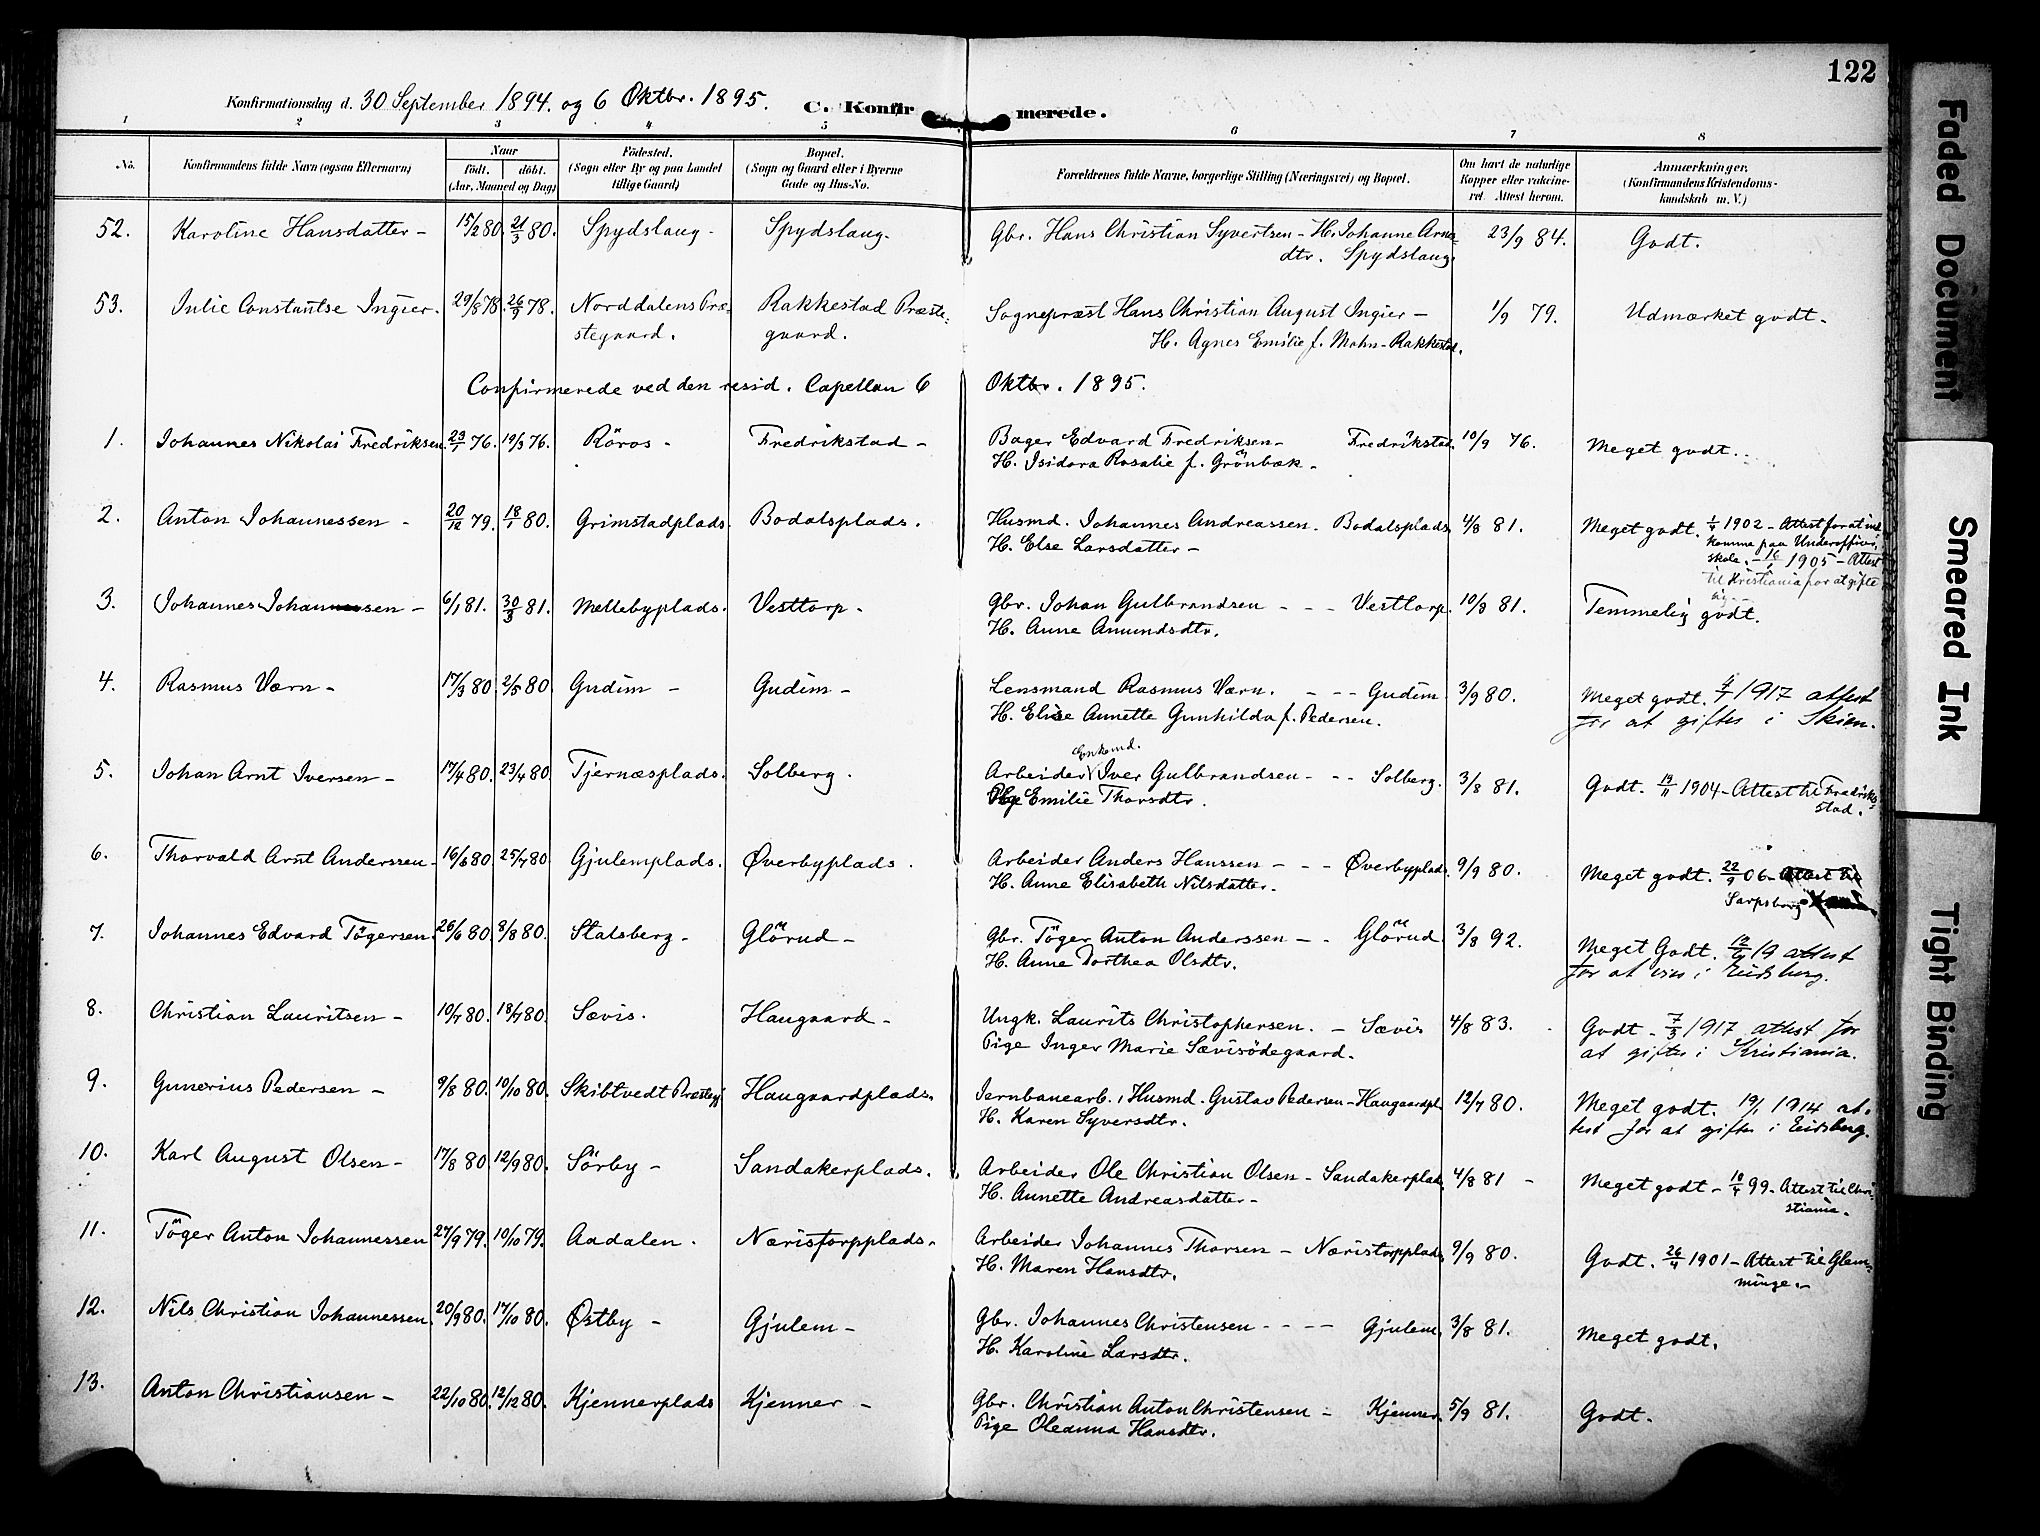 122
Konfirmationsdag d. 30 September 1894. og 6 Oktbr. 1895. C. Konfirmerede.
1 2 3 4 5 6 7 8
No. Konfirmandens fulde Navn (ogsaa Efternavn) Naar födt. döbt. (Aar, Maaned og Dag) Födested. (Sogn eller By og paa Landet tillige Gaard) Bopæl. (Sogn og Gaard eller i Byerne Gade og Hus-No. Forældrenes fulde Navne, borgerlige Stilling (Næringsvei) og Bopæl. Om havt de naturlige Kopper eller vaccineret. Attest herom. Anmærkninger. (Konfirmandens Kristendomskundskab m. V.)
52. Karoline Hansdatter - 15/2 80 21/3 80. Spydslaug - Spydslaug. Gbr. Hans Christian Syvertsen - H. Johanne Arne- 23/9 84. Godt.
dtr. Spydslaug.
53. Julie Constantse Ingier. 29/8 78. 26/9 78. Norddalens Præ- Rakkestad Præste- Sognepræst Hans Christian August Ingier - 1/9 79. Udmærket godt.
stegaard. gaard. H. Agnes Emilie f. Mohn - Rakkestad.
Confirmerede ved den resid. Capellan 6 Oktbr. 1895.
1. Johannes Nikolai Fredriksen. 23/1 76. 19/3 76. Röros - Fredrikstad - Bager Edvard Fredriksen - Fredrikstad. 10/9 76. Meget godt.
H. Isidora Rosalie f. Grönbæk -
2. Anton Johannessen - 20/12 79. 18/1 80. Grimstadplads. Bodalsplads. Husmd. Johannes Andreassen. Bodalsplads 4/8 81. Meget godt. 1/4 1902 - Attest for at ind
H. Else Larsdatter - komme paa Underofficers
skole. - 16/1 1905 - Attest
til Kristiania for at gifte
sig.
3. Johannes Johannessen - 6/1 81. 30/3 81. Mellebyplads. Vesttorp - Gbr. Johan Gulbrandsen - - - Vesttorp. 10/9 81. Temmelig godt.
H. Anne Amundsdtr.
4. Rasmus Værn - 17/3 80 2/5 80 Gudim - Gudim - Lensmand Rasmus Værn. - - - Gudim 3/9 80. Meget godt. 1917 attest
H. Elise Annette Gunhilda f. Pedersen. for at giftes i Skien.
5. Johan Arnt Iversen - 17/4 80. 23/4 80 Tjernæsplads. Solberg. Arbeider Enkemd. Iver Gulbrandsen - - - Solberg. 3/8 81. Godt. 19/11 1904 - Attest til Fredrik-
Emilie Thorsdtr. stad.
6. Thorvald Arnt Anderssen - 16/6 80. 25/7 80 Gjulemplads. Øverbyplads. Arbeider Anders Hanssen - - - Øverbyplads. 9/9 80. Meget godt. 22/9 06 - Attest til
H. Anne Elisabeth Nilsdatter - Sarpsborg.
7. Johannes Edvard Tögersen. 26/6 80 8/8 80. Stalsberg - Glörud - Gbr. Töger Anton Anderssen - - Glörud 3/8 92. Meget Godt. 19 attest
H. Anne Dorthea Olsdtr. for at vies i Eidsberg.
8. Christian Lauritsen - 10/7 80. 18/7 80. Sævis. Haugaard - Ungk. Laurits Christophersen. - Sævis 4/8 83. Godt - 7/3 1917 attest for
Pige Inger Marie Sævisödegaard. at giftes i Kristiania.
9. Gunerius Pedersen - 9/8 80. 10/10 80. Skibtvedt Præsteg. Haugaardplads. Jernbanearb. Husmd. Gustav Pedersen - Haugaardpl. 12/7 80. Meget godt. 19/1 1914 at-
H. Karen Syversdtr. test for at giftes i Eidsberg.
10. Karl August Olsen - 17/8 80 12/9 80. Sörby - Sandakerplads. Arbeider Ole Christian Olsen - Sandakerplads. 4/8 81 - Meget godt - 10/4 99 - Attest til Chri-
H. Annette Andreasdatter - stiania.
11. Töger Anton Johannessen 27/9 79. 10/10 79. Aadalen. Næristorpplads. Arbeider Johannes Thorsen - Næristorpplads 9/9 80. Godt. 26/4 1901 - Attest til Glem-
H. Maren Hansdtr. minge.-
12. Nils Christian Johannessen. 20/9 80. 17/10 80. Østby - Gjulem - Gbr. Johannes Christensen - - - - Gjulem. 3/8 81. Meget godt.
H. Karoline Larsdtr.
13. Anton Christiansen - 22/10 80. 12/12 80. Kjennerplads Kjenner - Gbr. Christian Anton Christensen - Kjenner. 5/9 81. Godt.
Pige Oleanna Hansdtr.
Faded Document
Smeared Ink
Tight Binding